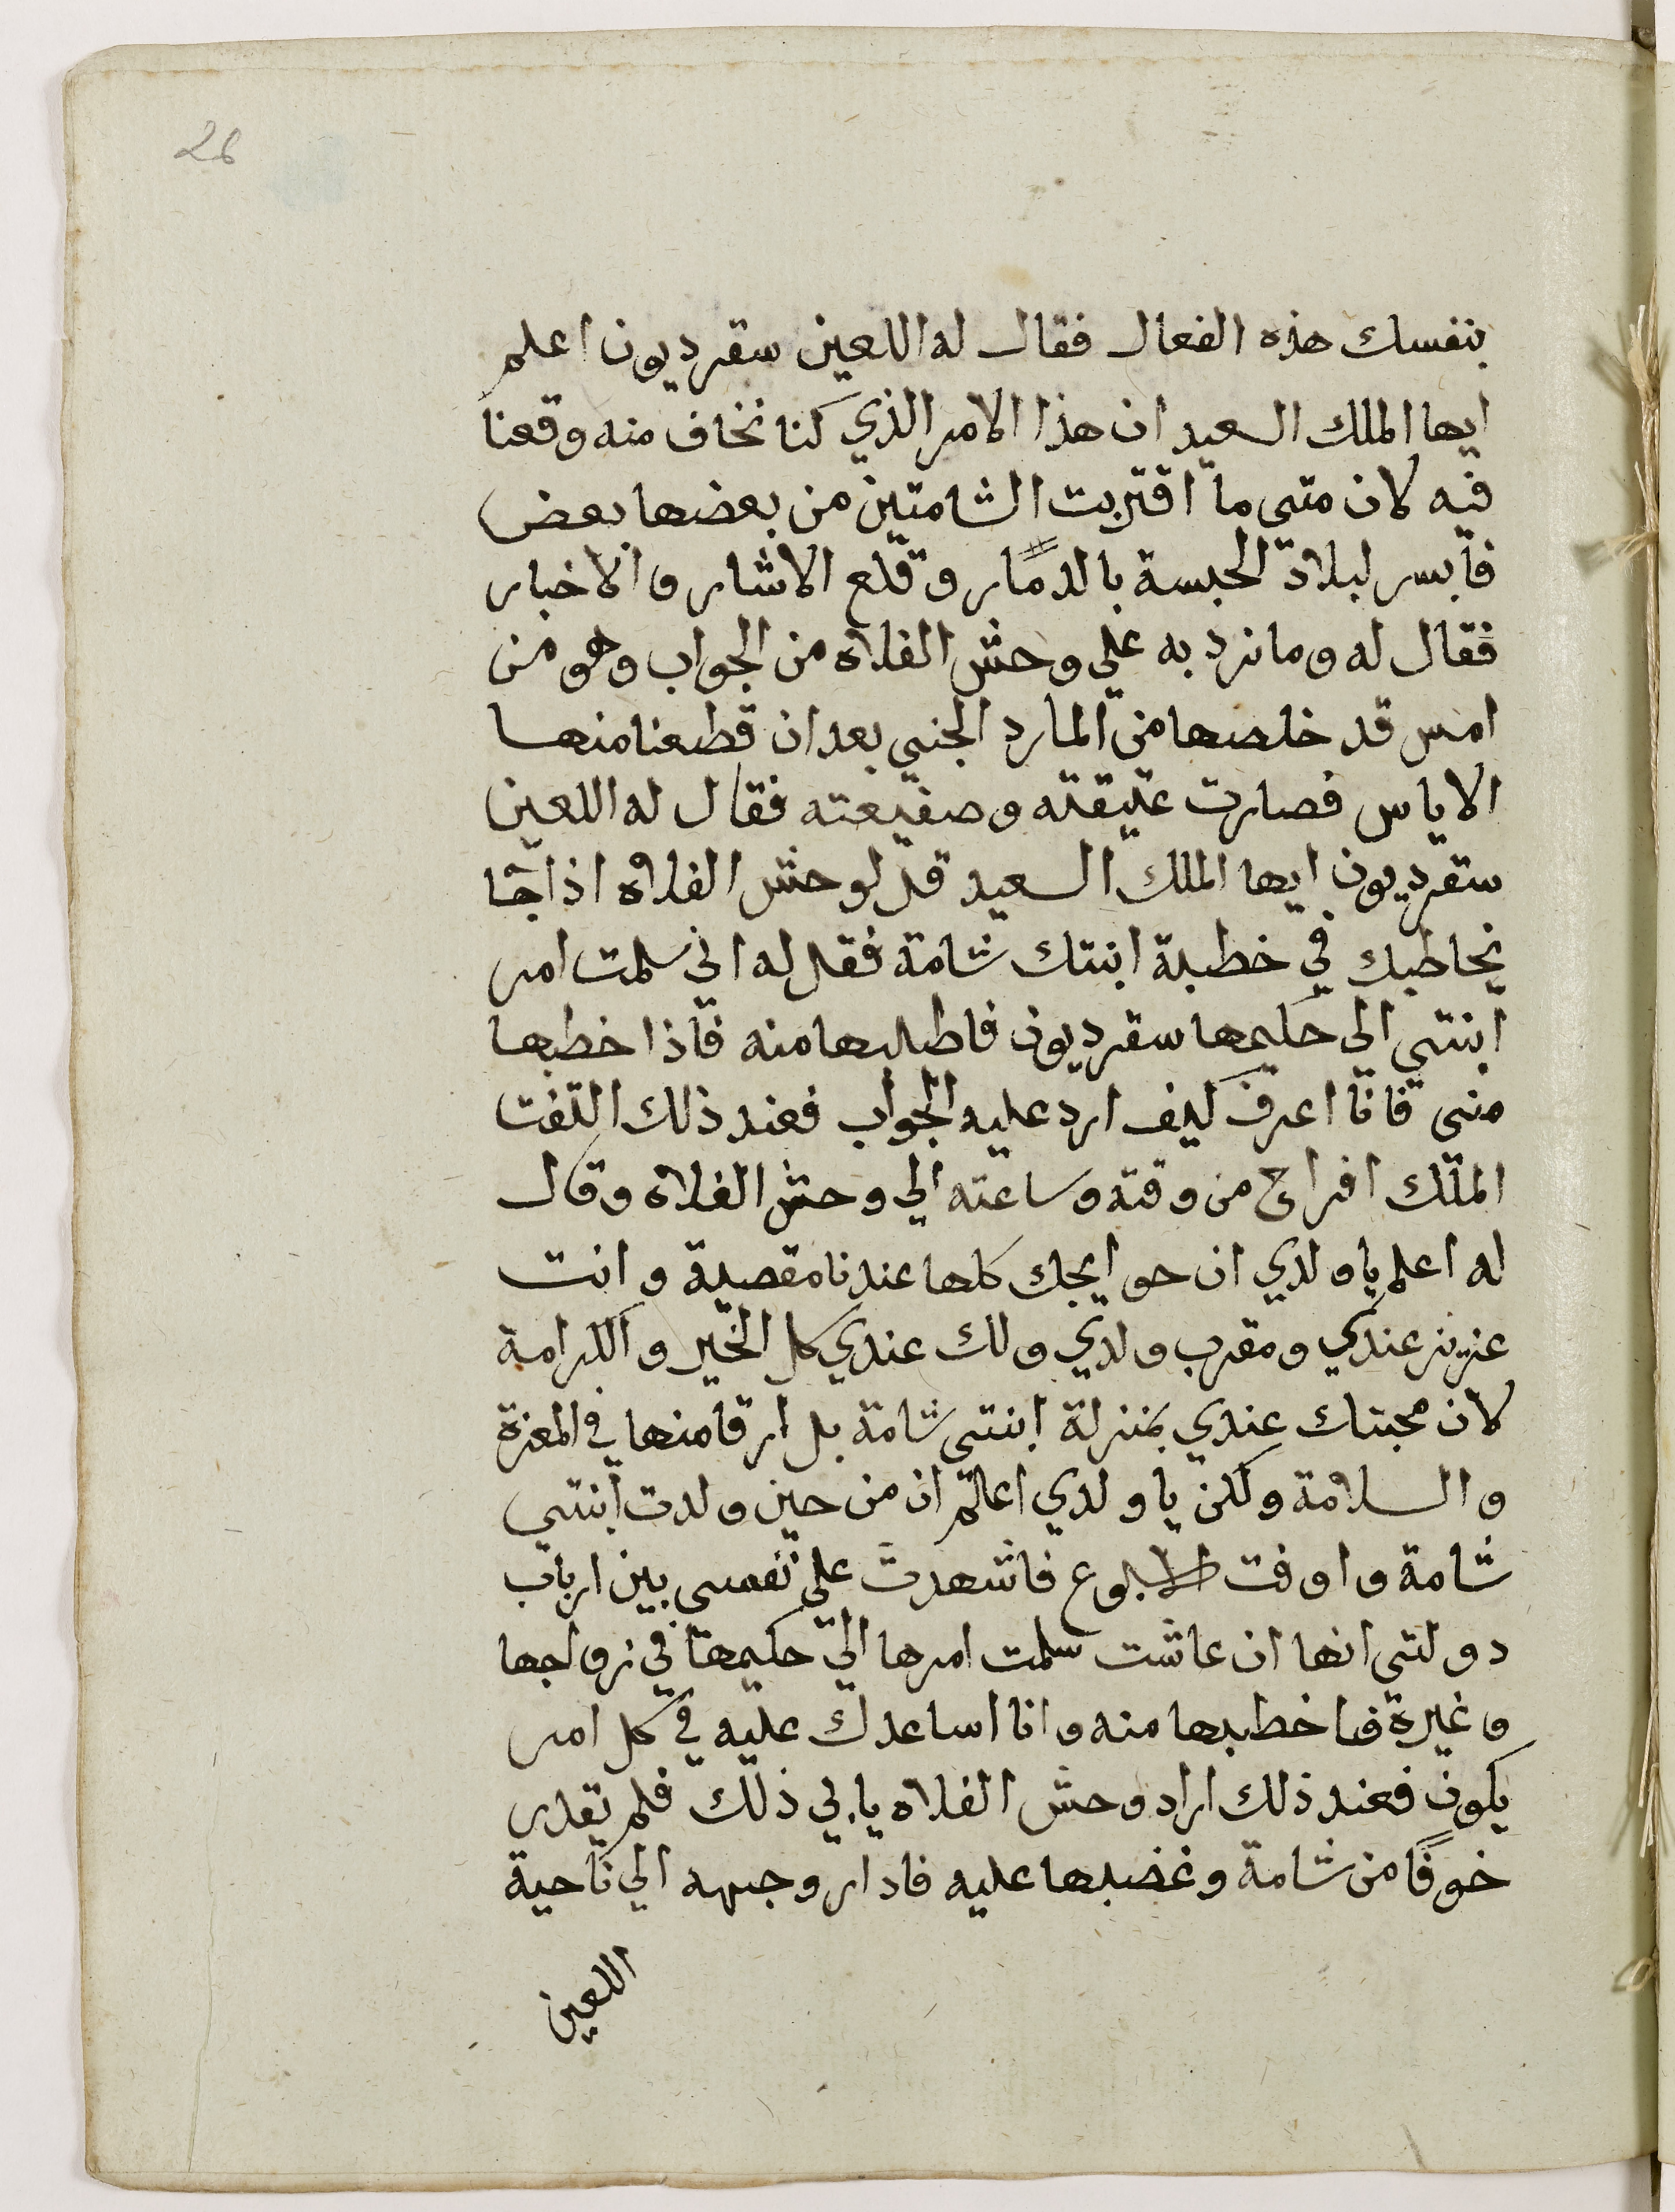 26
بنفسك هذه الفعال فقال له اللعين سقرديون اعلم
ايها الملك السعيد ان هذا الامر الذي كنا نخاف منه وقعنا
فيه لان متى ما اقتربت الشامتين من بعضها بعض
فابسر لبلاد الحبسة بالدمار وقلع الاشار والاخبار
فقال له وما نرد به علي وحش الفلاه من الجواب وهو من
امس قد خلصها من المارد الجني بعد ان قطعنا منها
الاياس فصارت عتيقته وصفيعته فقال له اللعين
سقرديون ايها الملك السعيد قل لوحش الفلاه اذا جا
يخاطبك في خطبة ابنتك شامة فقل له اني سلمت امر
ابنتي الى حكيمها سقرديون فاطلبها منه فاذا خطبها
مني فانا اعرف كيف ارد عليه الجواب فعند ذلك التفت
الملك افراح من وقته وساعته الي وحش الفلاه وقال
له اعلم يا ولدي ان حوايجك كلها عندنا مقصية وانت
عزيز عندي ومقرب ولدي ولك عندي كل الخير والكرامة
لان محبتك عندي بمنزلة ابنتي شامة بل ارقا منها في المعزة
والسلامة ولكن يا ولدي اعالم ان من حين ولدت ابنتي
شامة واوفت فاشهدت على نفسي بين ارباب
دولتي انها ان عاشت سلمت امرها الي حكيمها في زواجها
وغيرة فاخطبها منه وانا اساعدك عليه في كل امر
يكون فعند ذلك اراد وحش الفلاه يابي ذلك فلم يقدر
خوفًا من شامة وغضبها عليه فادار وجهه الي ناحية
اللعين